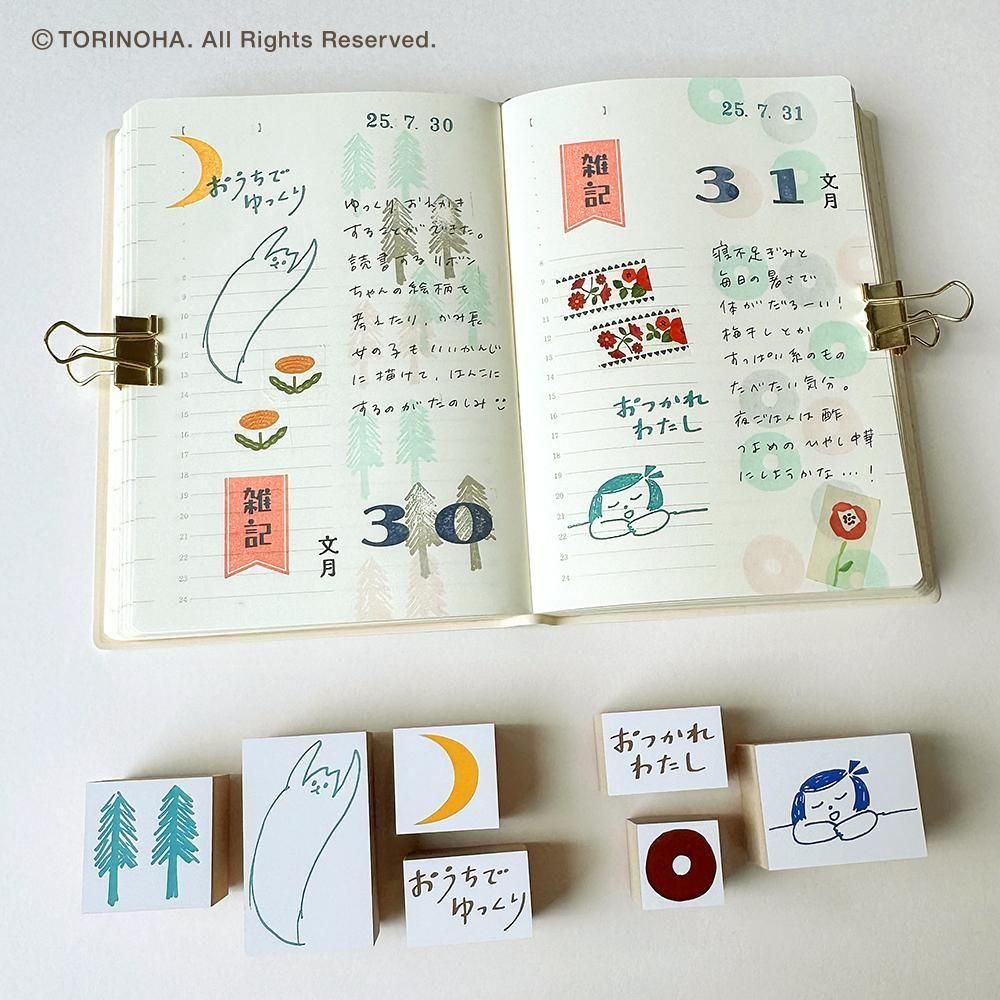 © TORINOHA. All Rights Reserved.
25. 7. 30
おうちで
ゆっくり
ゆっくりおえかき
することができた。
読書するリボン
ちゃんの絵柄を
考えたり、かみ長
女の子もいいかんじ
に描けて、はんこに
するのがたのしみ
雑記
文月
30
25. 7. 31
雑記
31
文月
寝不足ぎみと
毎日の暑さで
体がだるーい!
梅干しとか
すっぱい系のもの
たべたい気分。
夜ごはんは酢
つよめのひやし中華
にしようかな…!
おつかれ
わたし
おうちで
ゆっくり
おつかれ
わたし